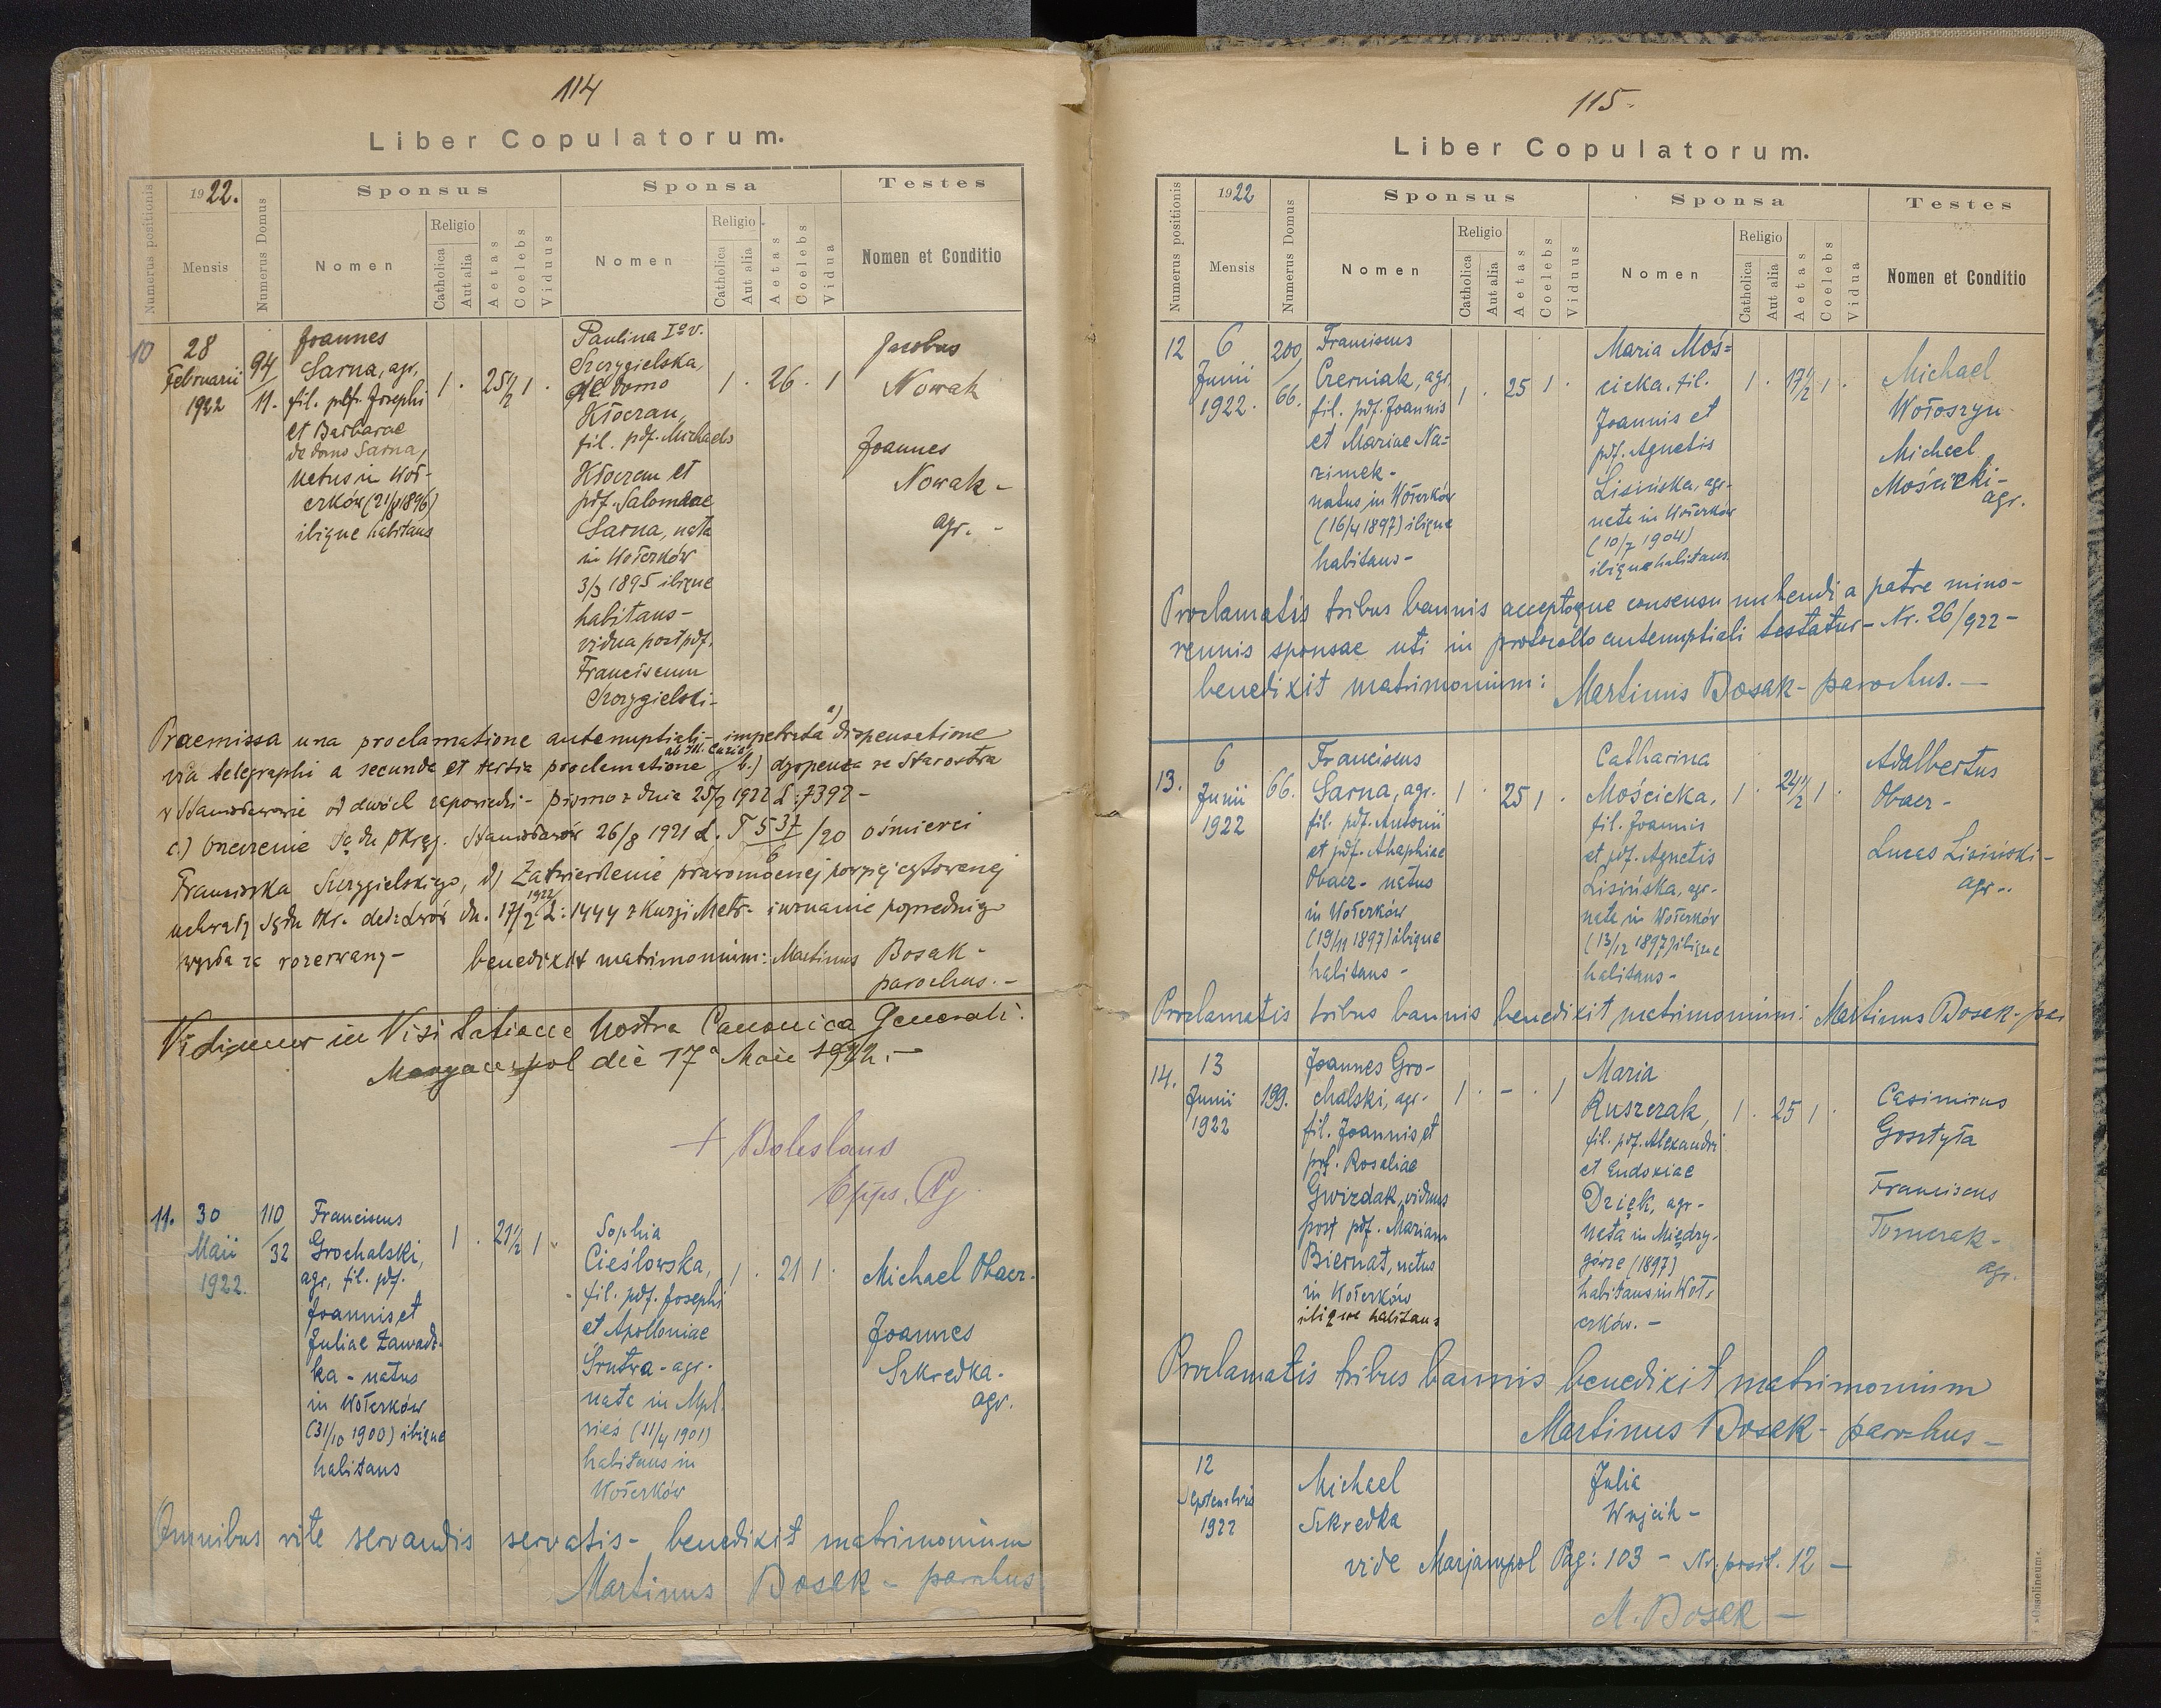 114
Liber Copulatorum.
Numerus positionis
1922.
Mensis
Numerus Domus
Sponsus
Nomen
Religio
Catholica
Aut alia
Aetas
Coelebs
Viduus
Sponsa
Nomen
Religio
Catholica
Aut alia
Aetas
Coelebs
Vidua
Testes
Nomen et Conditio
10
28
Februarii
1922
94/11.
Joannes
Sarna, agr,
fil. pdf. Josephi
et Barbarae
de domo Sarna,
natus in Woł-
czków (21/8 1896)
ibique habitans
1 · 25 1/2 1 ·
Paulina Iº v.
Szczygielska,
de domo
Kłoczan,
fil. pdf. Michaelis
Kłoczan et
pdf. Salomeae
Sarna, nata
in Wołczków
3/3 1895 ibique
habitans -
vidua post pdf.
Franciscum
Szczygielski -
1 · 26 · 1
Jacobus
Nowak
Joannes
Nowak -
agr. -
Praemissa una proclamatione antenuptiali - impetrata a) dispensatione
via telegraphi a secunda et tertia proclamatione ab Ill. Curia, b.) dyspenza ze Starostwa
w Stanisławowie od dwóch zapowiedzi - pismo z dnia 25/2 1922 L: 7392 -
c.) orzeczenie Sądu Okręg. Stanisławów 26/8 1921 L. T 5 37/6 /20 o śmierci
Franciszka Szczygielskiego, d) Zatwierdzenie prawomocnej powyżej cytowanej
uchwały Sądu Okr. ded: Lwów dn. 17/2 1922 L: 1444 z Kurji Metr. i uznanie poprzedniego
węzła za rozerwany - benedixit matrimonium: Martinus Bosak -
parochus. -
Vidimus in Visitatione Nostra Canonica Generali.
Maryampol die 17ª Maii 1922. -
+ Boleslaus
Epps.
11.
30
Maii
1922.
110/32
Franciscus
Grochalski,
agr, fil. pdf.
Joannis et
Juliae Zawadz-
ka - natus
in Wołczków
(31/10 1900) ibique
habitans
1 · 21 1/2 1 "
Sophia
Cieślowska,
fil. pdf. Josephi
et Apolloniae
Srutwa - agr.
nata in Mpl.
wieś (11/4 1901)
habitans in
Wołczków
1 · 21 1 ·
Michael Obacz -
Joannes
Szkredka -
agr.
Omnibus rite servandis servatis - benedixit matrimonium
Martinus Bosak - parochus
115.
Liber Copulatorum.
Numerus positionis
1922
Mensis
Numerus Domus
Sponsus
Nomen
Religio
Catholica
Aut alia
Aetas
Coelebs
Viduus
Sponsa
Nomen
Religio
Catholica
Aut alia
Aetas
Coelebs
Vidua
Testes
Nomen et Conditio
12
6
Junii
1922.
200/66.
Franciscus
Czerniak, agr.
fil. pdf. Joannis
et Mariae Na=
zimek -
natus in Wołczków
(16/4 1897) ibique
habitans -
1 · 25 1 ·
Maria Moś=
cicka. fil.
Joannis et
pdf. Agnetis
Lisińska, agr -
nata in Wołczków
(10/7 1904)
ibique habitans.
1 · 17 1/2 1 ·
Michael
Wołoszyn -
Michael
Mościcki -
agr.
Proclamatis tribus bannis acceptoque consensu nubendi a patre mino-
rennis sponsae uti in protocollo antenuptiali testatur - Nr. 26/922 -
benedixit matrimonium: Martinus Bosak - parochus. -
13.
6
Junii
1922
66.
Franciscus
Sarna, agr.
fil. pdf. Antonii
et pdf. Ahaphiae
Obacz - natus
in Wołczków
(19/11 1897) ibique
habitans -
1 · 25 1 ·
Catharina
Mościcka,
fil. Joannis
et pdf. Agnetis
Lisińska, agr -
nata in Wołczków
(13/12 1897) ibique
habitans -
1 · 24 1/2 1 ·
Adalbertus
Obacz -
Lucas Lisiński -
agr -.
Proclamatis tribus bannis benedixit matrimonium: Martinus Bosak - par
14.
13
Junii
1922
199.
Joannes Gro-
chalski, agr -
fil. Joannis et
pdf. Rosaliae
Gwizdak, viduus
post pdf. Mariam
Biernat, natus
in Wołczków
ibique habitans
1 · - · 1
Maria
Ruszczak,
fil. pdf. Alexandri
et Eudoxiae
Dzięk, agr -
nata in Między-
górze (1897)
habitans in Woł-
czków. -
1 · 25 1 ·
Casimirus
Gosztyła
Franciscus
Tomczak -
agr.
Proclamatis tribus bannis benedixit matrimonium
Martinus Bosak - parochus -
12
Septembris
1922
Michael
Szkredka
Julia
Wójcik -
vide Marjampol Pag: 103 - Nr. posit. 12 -
M. Bosak -
»Ossolineum«